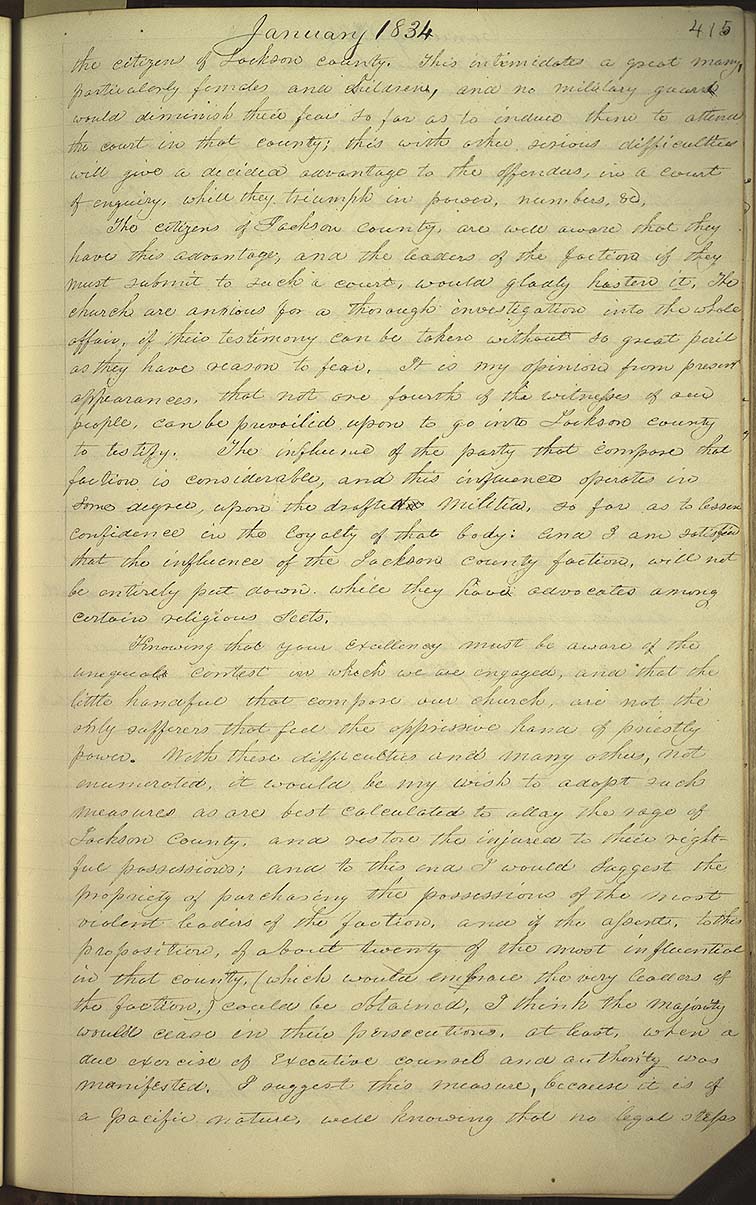 January 1834
415
the citizen of Jackson county. This intimidates a great many,
particularly females and children, and no military guard
would diminish their fears so far as to induce them to attend
the court in that county; this with other serious difficulties
will give a decided advantage to the offenders, in a court
of enquiry, while they triumph in power, numbers, &c,
The citizens of Jackson county, are well aware that they
have this advantage, and the leaders of the faction if they
must submit to such a court, would gladly hasten it. The
church are anxious for a thorough investigation into the whole
affair, if their testimony can be taken without so great peril
as they have reason to fear. It is my opinion from present
appearances, that not one fourth of the witnesses of our
people, can be prevailed upon to go into Jackson county
to testify. The influence of the party that compose that
faction is considerable, and this influence operates in
some degree, upon the drafted Militia, so far as to lessen
confidence in the loyalty of that body: and I am satisfied
that the influence of the Jackson county faction, will not
be entirely put down while they have advocates among
certain religious sects.
Knowing that your Excellency must be aware of the
unequal contest in which we are engaged, and that the
little handful that compose our church, are not the
only sufferers that feel the oppressive hand of priestly
power. With these difficulties and many others, not
enumerated, it would be my wish to adopt such
measures as are best calculated to allay the rage of
Jackson County, and restore the injured to their right-
ful possessions; and to this end I would suggest the
propriety of purchasing the possessions of the most
violent leaders of the faction, and if the assent, to this
proposition, of about twenty of the most influential
in that county, (which would embrace the very leaders of
the faction,) could be obtained, I think the majority
would cease in their persecutions, at least, when a
due exercise of Executive counsel and authority was
manifested. I suggest this measure, because it is of
a pacific nature, well knowing that no legal steps